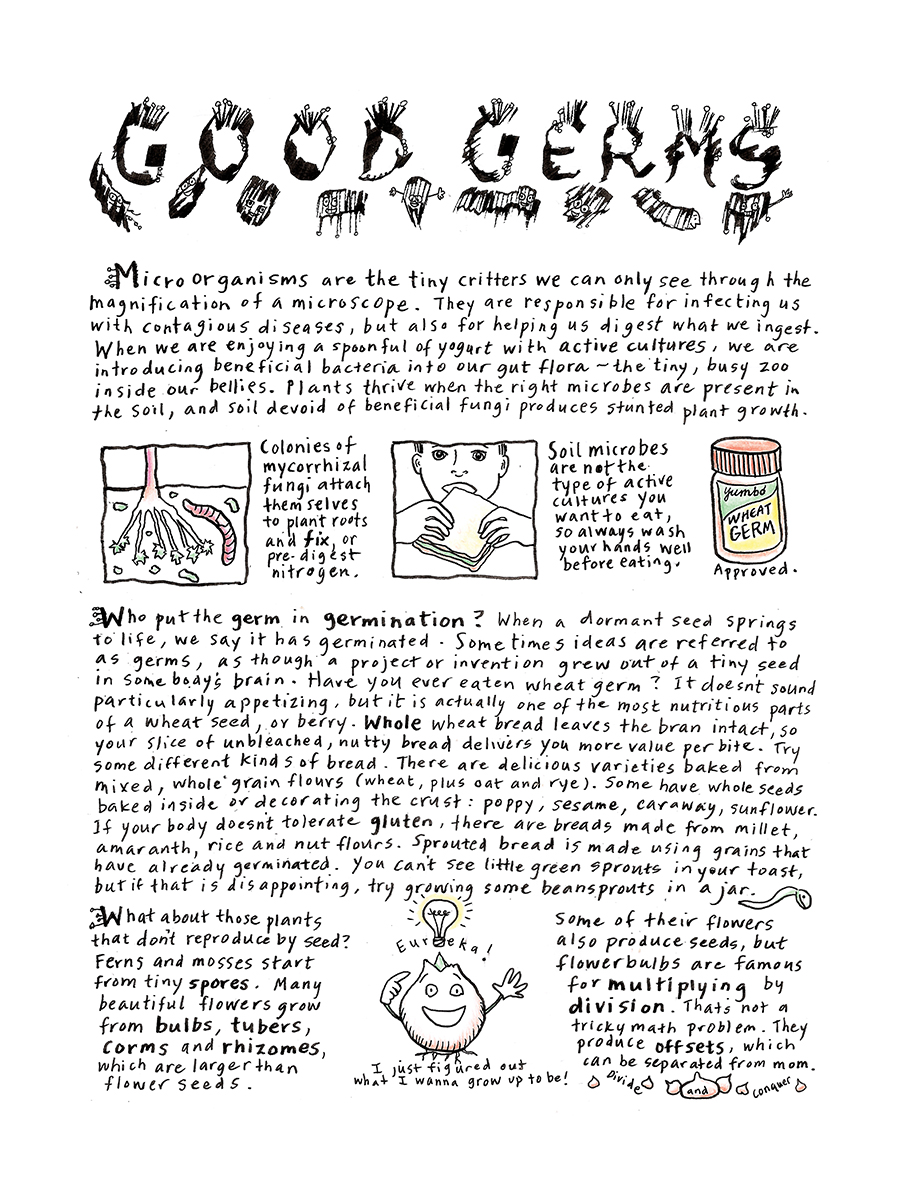 GOOD GERMS
Microorganisms are the tiny critters we can only see through the
magnification of a microscope. They are responsible for infecting us
with contagious diseases, but also for helping us digest what we ingest.
When we are enjoying a spoonful of yogurt with active cultures, we are
introducing beneficial bacteria into our gut flora ~ the tiny, busy zoo
inside our bellies. Plants thrive when the right microbes are present in
the soil, and soil devoid of beneficial fungi produces stunted plant growth.
Colonies of
mycorrhizal
fungi attach
themselves
to plant roots
and fix, or
pre-digest
nitrogen.
Soil microbes
are not the
type of active
cultures you
want to eat,
so always wash
your hands well
before eating.
Yumbo
WHEAT
GERM
Approved.
Who put the germ in germination? When a dormant seed springs
to life, we say it has germinated. Sometimes ideas are referred to
as germs, as though a project or invention grew out of a tiny seed
in somebody's brain. Have you ever eaten wheat germ? It doesn't sound
particularly appetizing, but it is actually one of the most nutritious parts
of a wheat seed, or berry. Whole wheat bread leaves the bran intact, so
your slice of unbleached, nutty bread delivers you more value per bite. Try
some different kinds of bread. There are delicious varieties baked from
mixed, whole grain flours (wheat, plus oat and rye). Some have whole seeds
baked inside or decorating the crust: poppy, sesame, caraway, sunflower.
If your body doesn't tolerate gluten, there are breads made from millet,
amaranth, rice and nut flours. Sprouted bread is made using grains that
have already germinated. You can't see little green sprouts in your toast,
but if that is disappointing, try growing some beansprouts in a jar.
What about those plants
that don't reproduce by seed?
Ferns and mosses start
from tiny spores. Many
beautiful flowers grow
from bulbs, tubers,
corms and rhizomes,
which are larger than
flower seeds.
Eureka!
I just figured out
what I wanna grow up to be!
Some of their flowers
also produce seeds, but
flowerbulbs are famous
for multiplying by
division. That's not a
tricky math problem. They
produce offsets, which
can be separated from mom.
Divide and Conquer